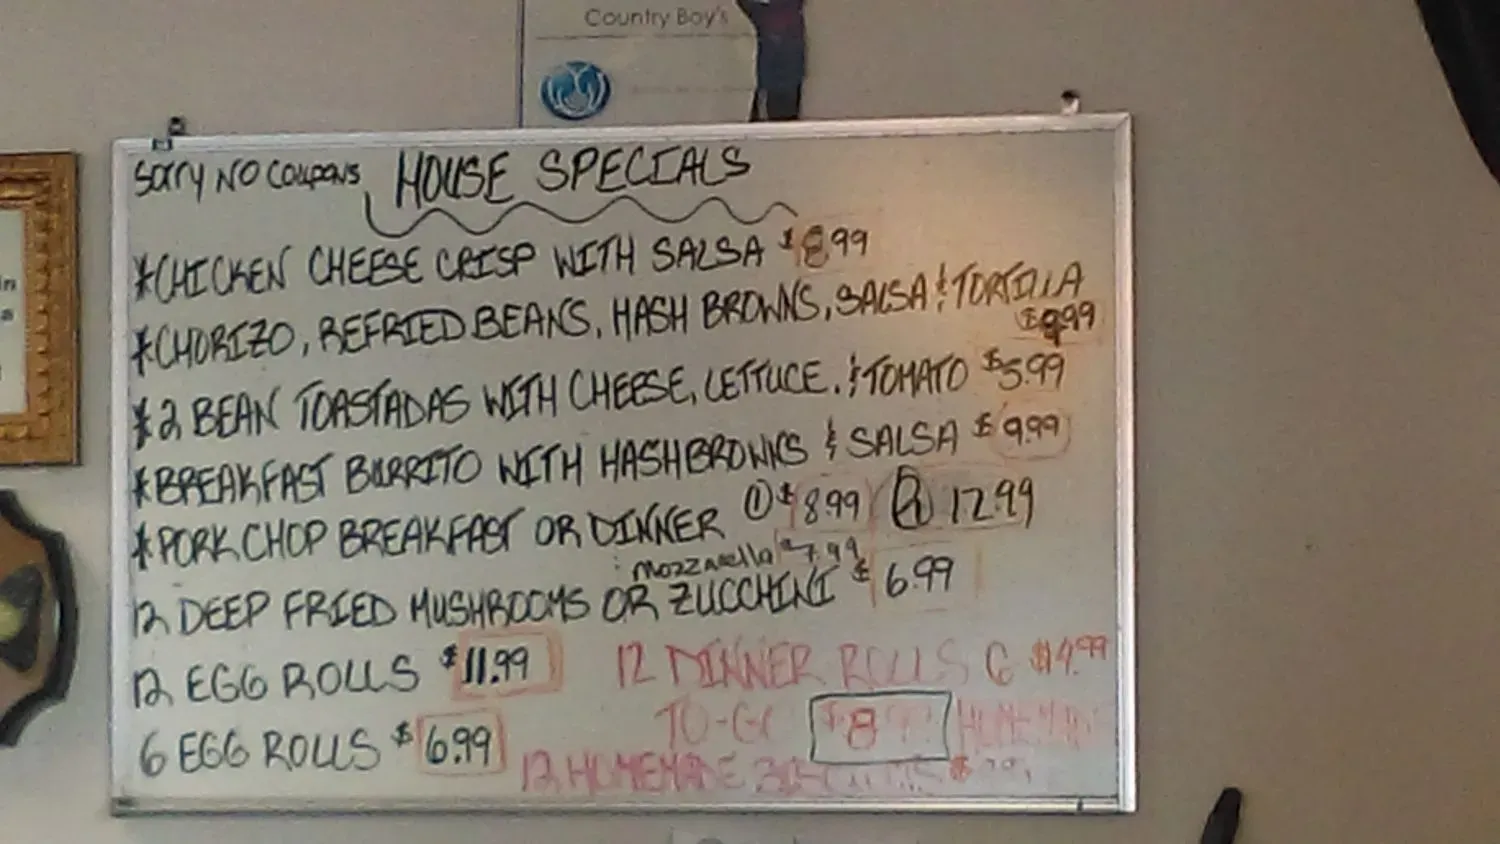 Country Boy's
SORRY NO COUPONS HOUSE SPECIALS
*CHICKEN CHEESE CRISP WITH SALSA $8.99
*CHORIZO, REFRIED BEANS, HASH BROWNS, SALSA & TORTILLA
$9.99
*2 BEAN TOASTADAS WITH CHEESE, LETTUCE. & TOMATO $5.99
*BREAKFAST BURRITO WITH HASHBROWNS & SALSA $9.99
*PORK CHOP BREAKFAST OR DINNER ① $8.99 ② 12.99
mozzarella $7.99
12 DEEP FRIED MUSHROOMS OR ZUCCHINI $6.99
12 EGG ROLLS $11.99
12 DINNER ROLLS 6 $4.99
6 EGG ROLLS $6.99
TO-GO $8
12 HOMEMADE
in
a